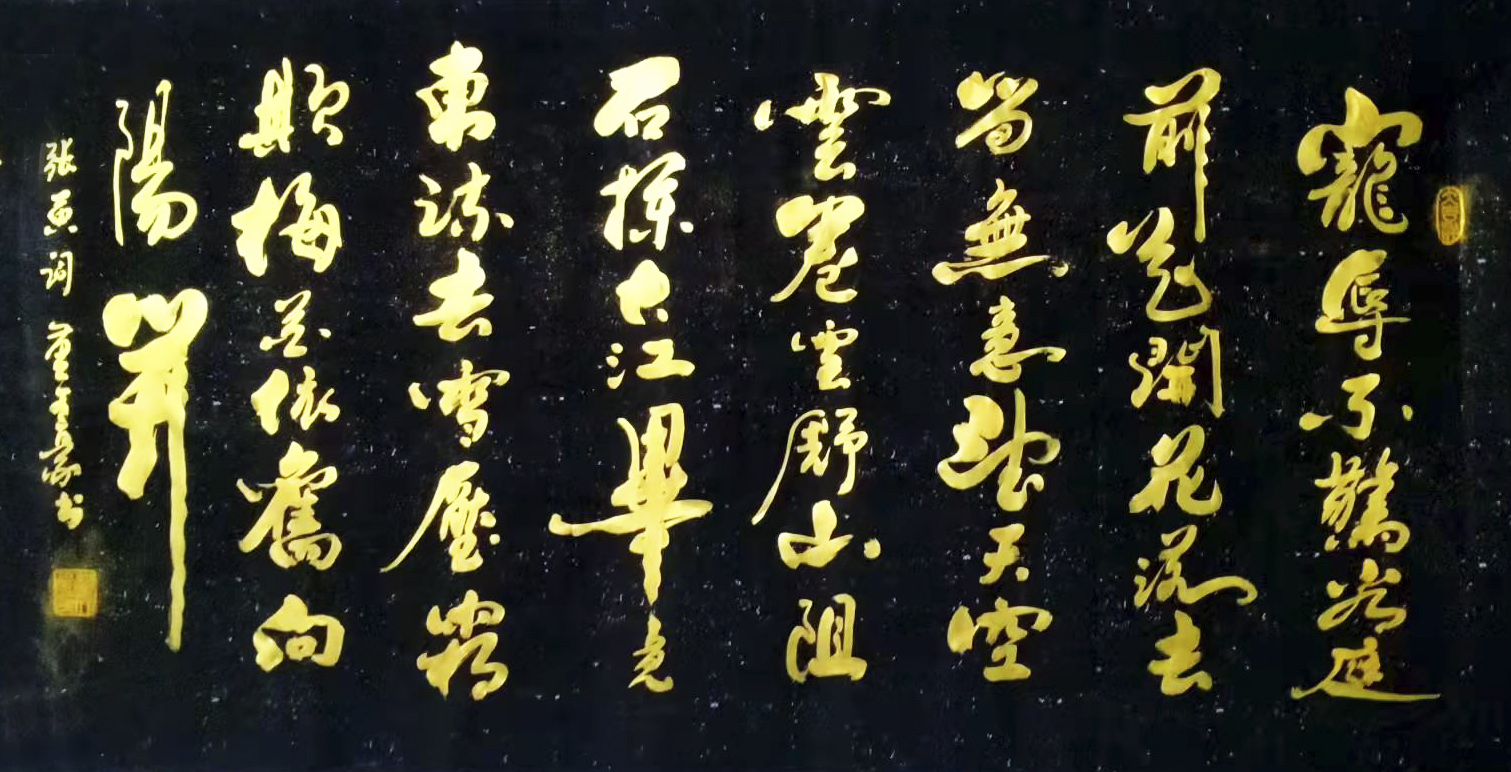 寵辱不驚看庭
前花開花落去
留無意望天空
雲卷雲舒山阻
石攔大江畢竟
東流去雪壓霜
欺梅花依舊向
陽開
張 詞 董 書